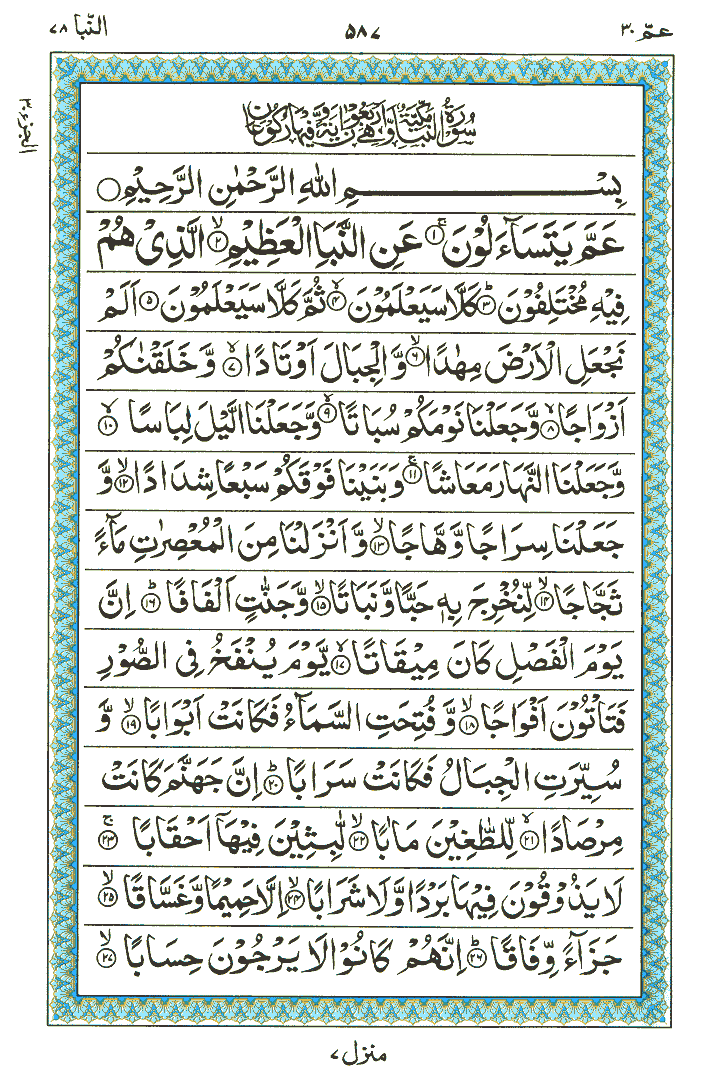 عمّ ۳۰
۵۸۷
النّبا ۷۸
الجزء ۳۰
سُوْرَةُ النَّبَاِ مَكِّيَّةٌ وَّهِيَ اَرْبَعُوْنَ اٰيَةً وَّفِيْهَا رُكُوْعَانِ
بِسْمِ اللهِ الرَّحْمٰنِ الرَّحِيْمِ ○
عَمَّ يَتَسَآءَلُوْنَ ۚ‏﴿۱﴾ عَنِ النَّبَاِ الْعَظِيْمِ ۙ‏﴿۲﴾ الَّذِىْ هُمْ
فِيْهِ مُخْتَلِفُوْنَ ؕ‏﴿۳﴾ كَلَّا سَيَعْلَمُوْنَ ۙ‏﴿۴﴾ ثُمَّ كَلَّا سَيَعْلَمُوْنَ ﴿۵﴾ اَلَمْ
نَجْعَلِ الْاَرْضَ مِهٰدًا ۙ‏﴿۶﴾ وَّ الْجِبَالَ اَوْتَادًا ۙ‏﴿۷﴾ وَّ خَلَقْنٰكُمْ
اَزْوَاجًا ۙ‏﴿۸﴾ وَّجَعَلْنَا نَوْمَكُمْ سُبَاتًا ۙ‏﴿۹﴾ وَّجَعَلْنَا الَّيْلَ لِبَاسًا ۙ‏﴿۱۰﴾
وَّجَعَلْنَا النَّهَارَ مَعَاشًا ۚ‏﴿۱۱﴾ وَبَنَيْنَا فَوْقَكُمْ سَبْعًا شِدَادًا ۙ‏﴿۱۲﴾ وَّ
جَعَلْنَا سِرَاجًا وَّهَّاجًا ۙ‏﴿۱۳﴾ وَّ اَنْزَلْنَا مِنَ الْمُعْصِرٰتِ مَآءً
ثَجَّاجًا ۙ‏﴿۱۴﴾ لِّنُخْرِجَ بِهٖ حَبًّا وَّنَبَاتًا ۙ‏﴿۱۵﴾ وَّجَنّٰتٍ اَلْفَافًا ؕ‏﴿۱۶﴾ اِنَّ
يَوْمَ الْفَصْلِ كَانَ مِيْقَاتًا ۙ‏﴿۱۷﴾ يَّوْمَ يُنْفَخُ فِى الصُّوْرِ
فَتَاْتُوْنَ اَفْوَاجًا ۙ‏﴿۱۸﴾ وَّ فُتِحَتِ السَّمَآءُ فَكَانَتْ اَبْوَابًا ۙ‏﴿۱۹﴾ وَّ
سُيِّرَتِ الْجِبَالُ فَكَانَتْ سَرَابًا ؕ‏﴿۲۰﴾ اِنَّ جَهَنَّمَ كَانَتْ
مِرْصَادًا ۙ‏﴿۲۱﴾ لِّلطّٰغِيْنَ مَاٰبًا ۙ‏﴿۲۲﴾ لّٰبِثِيْنَ فِيْهَاۤ اَحْقَابًا ۚ‏﴿۲۳﴾
لَا يَذُوْقُوْنَ فِيْهَا بَرْدًا وَّلَا شَرَابًا ۙ‏﴿۲۴﴾ اِلَّا حَمِيْمًا وَّغَسَّاقًا ۙ‏﴿۲۵﴾
جَزَآءً وِّفَاقًا ؕ‏﴿۲۶﴾ اِنَّهُمْ كَانُوْا لَا يَرْجُوْنَ حِسَابًا ۙ‏﴿۲۷﴾
منزل ۷